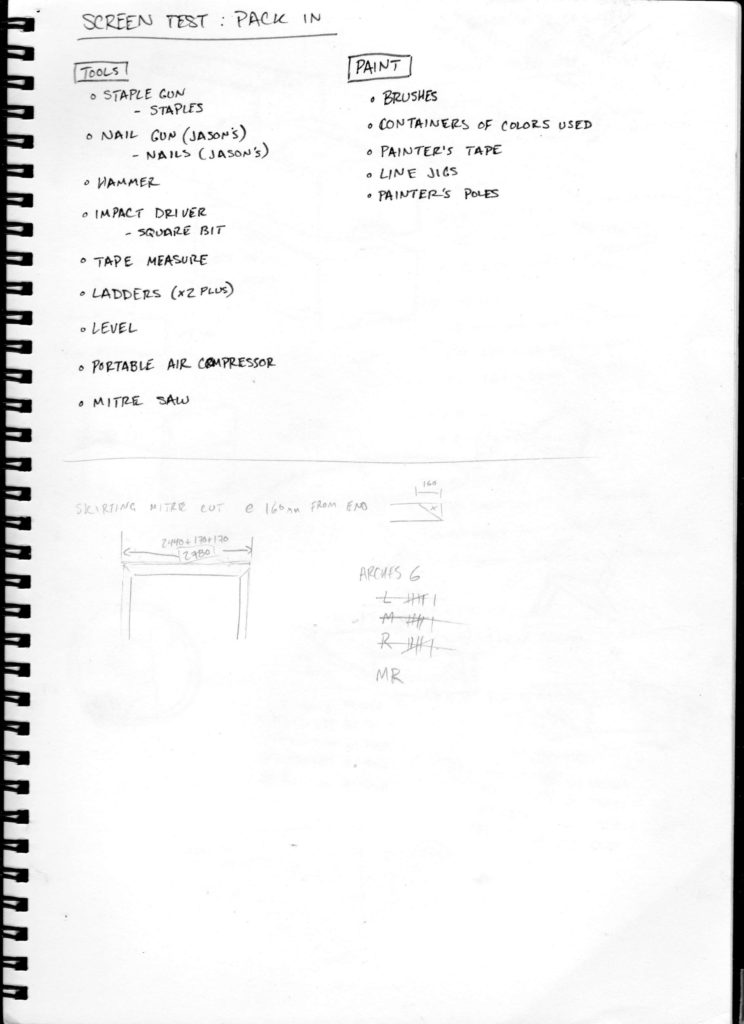 SCREEN TEST : PACK IN
TOOLS
STAPLE GUN
- STAPLES
NAIL GUN (JASON'S)
- NAILS (JASON'S)
HAMMER
IMPACT DRIVER
- SQUARE BIT
TAPE MEASURE
LADDERS (x2 PLUS)
LEVEL
PORTABLE AIR COMPRESSOR
MITRE SAW
PAINT
BRUSHES
CONTAINERS OF COLORS USED
PAINTER'S TAPE
LINE JIGS
PAINTER'S POLES
160
SKIRTING MITRE CUT @ 160mm FROM END
x
2440+170+170
2980
ARCHES 6
L
M
R
MR